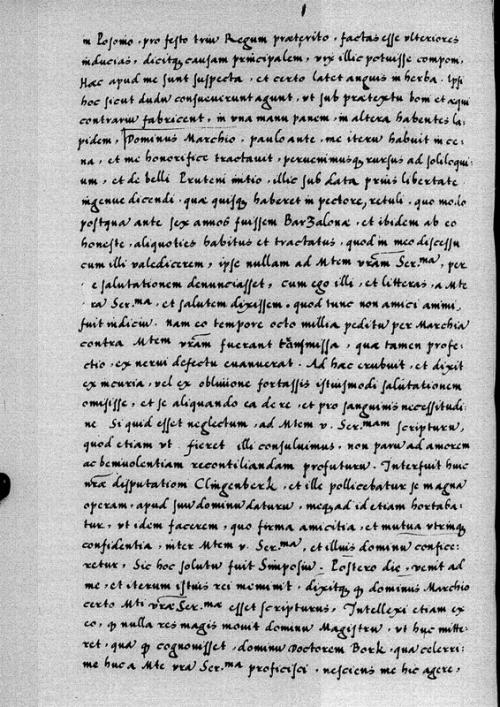 in Posonio. pro festo triu Regum præterito, factas esse ulteriores
inducias, dicitq causam principalem, vix illic potuisse componi,
Hæc apud me sunt suspecta, et certo latet anguis in herba. Ipsi
hoc sicut dudu consueverunt agunt, ut sub prætextu boni et æqui
contrariu fabricent, in una manu panem, in altera habentes la-
pidem, Dominus Marchio, paulo ante. me iteru habuit in ce-
na, et me honorifice tractavit, pervenimusq rursus ad soliloqui-
um, et de belli Pruteni initio, illic sub data prius libertate
ingenue dicendi. quæ quisq haberet in pectore, retuli, quo modo
postqua ante sex annos fuissem Barzalonæ, et ibidem ab eo
honeste, aliquoties habitus et tractatus, quod in meo discessu
cum illi valedicerem, ipse nullam ad Mtem vram Ser.ma, per
e salutationem denunciasset, cum ego illi, et litteras, a Mte
ra Ser.ma, et salutem dixissem. quod tunc non amici animi,
fuit indiciu. nam eo tempore octo millia peditu per Marchia
contra Mtem vram fuerant transmissa, quæ tamen profe-
ctio, ex nervi defectu evanuerat. Ad hæc erubuit, et dixit
ex incuria, vel ex oblivione fortassis istiusmodi salutationem
omisisse, et se aliquando ea de re, et pro sanguinis necessitudi-
ne Si quid esset neglectum, ad Mtem v. Ser.mam scripturu,
quod etiam ut fieret illi consuluimus, non paru ad amorem
ac benivolentiam reconciliandam profuturu. Interfuit huic
nræ disputationi Clingenberk, et ille pollicebatur se magna
operam, apud suu dominu daturu, meq ad id etiam hortaba-
tur, ut idem facerem, quo firma amicitia, et mutua utrinq
confidentia, inter Mtem v. Ser.ma, et illius dominu confice-
retur, Sic hoc solutu fuit Simposiu. Postero die, venit ad
me, et iterum istius rei meminit, dixitq q dominus Marchio
certo Mti vræ Ser.mæ esset scripturus, Intellexi etiam ex
eo, q nulla res magis movit dominu Magistru, ut huc mitte-
ret, qua q cognovisset, dominu Doctorem Bork, qua celerri-
me huc a Mte vra Ser.ma proficisci, nesciens me hic agere,